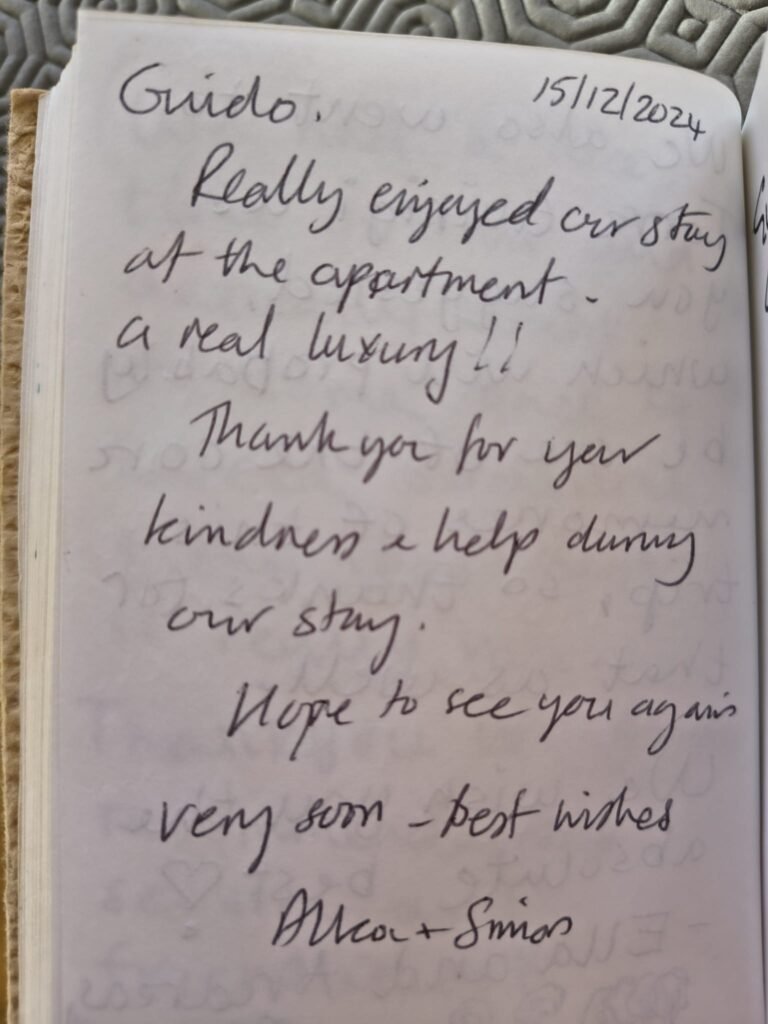 Guido. 15/12/2024
Really enjoyed our stay
at the apartment.
a real luxury!!
Thank you for your
kindness & help during
our stay.
Hope to see you again
very soon - best wishes